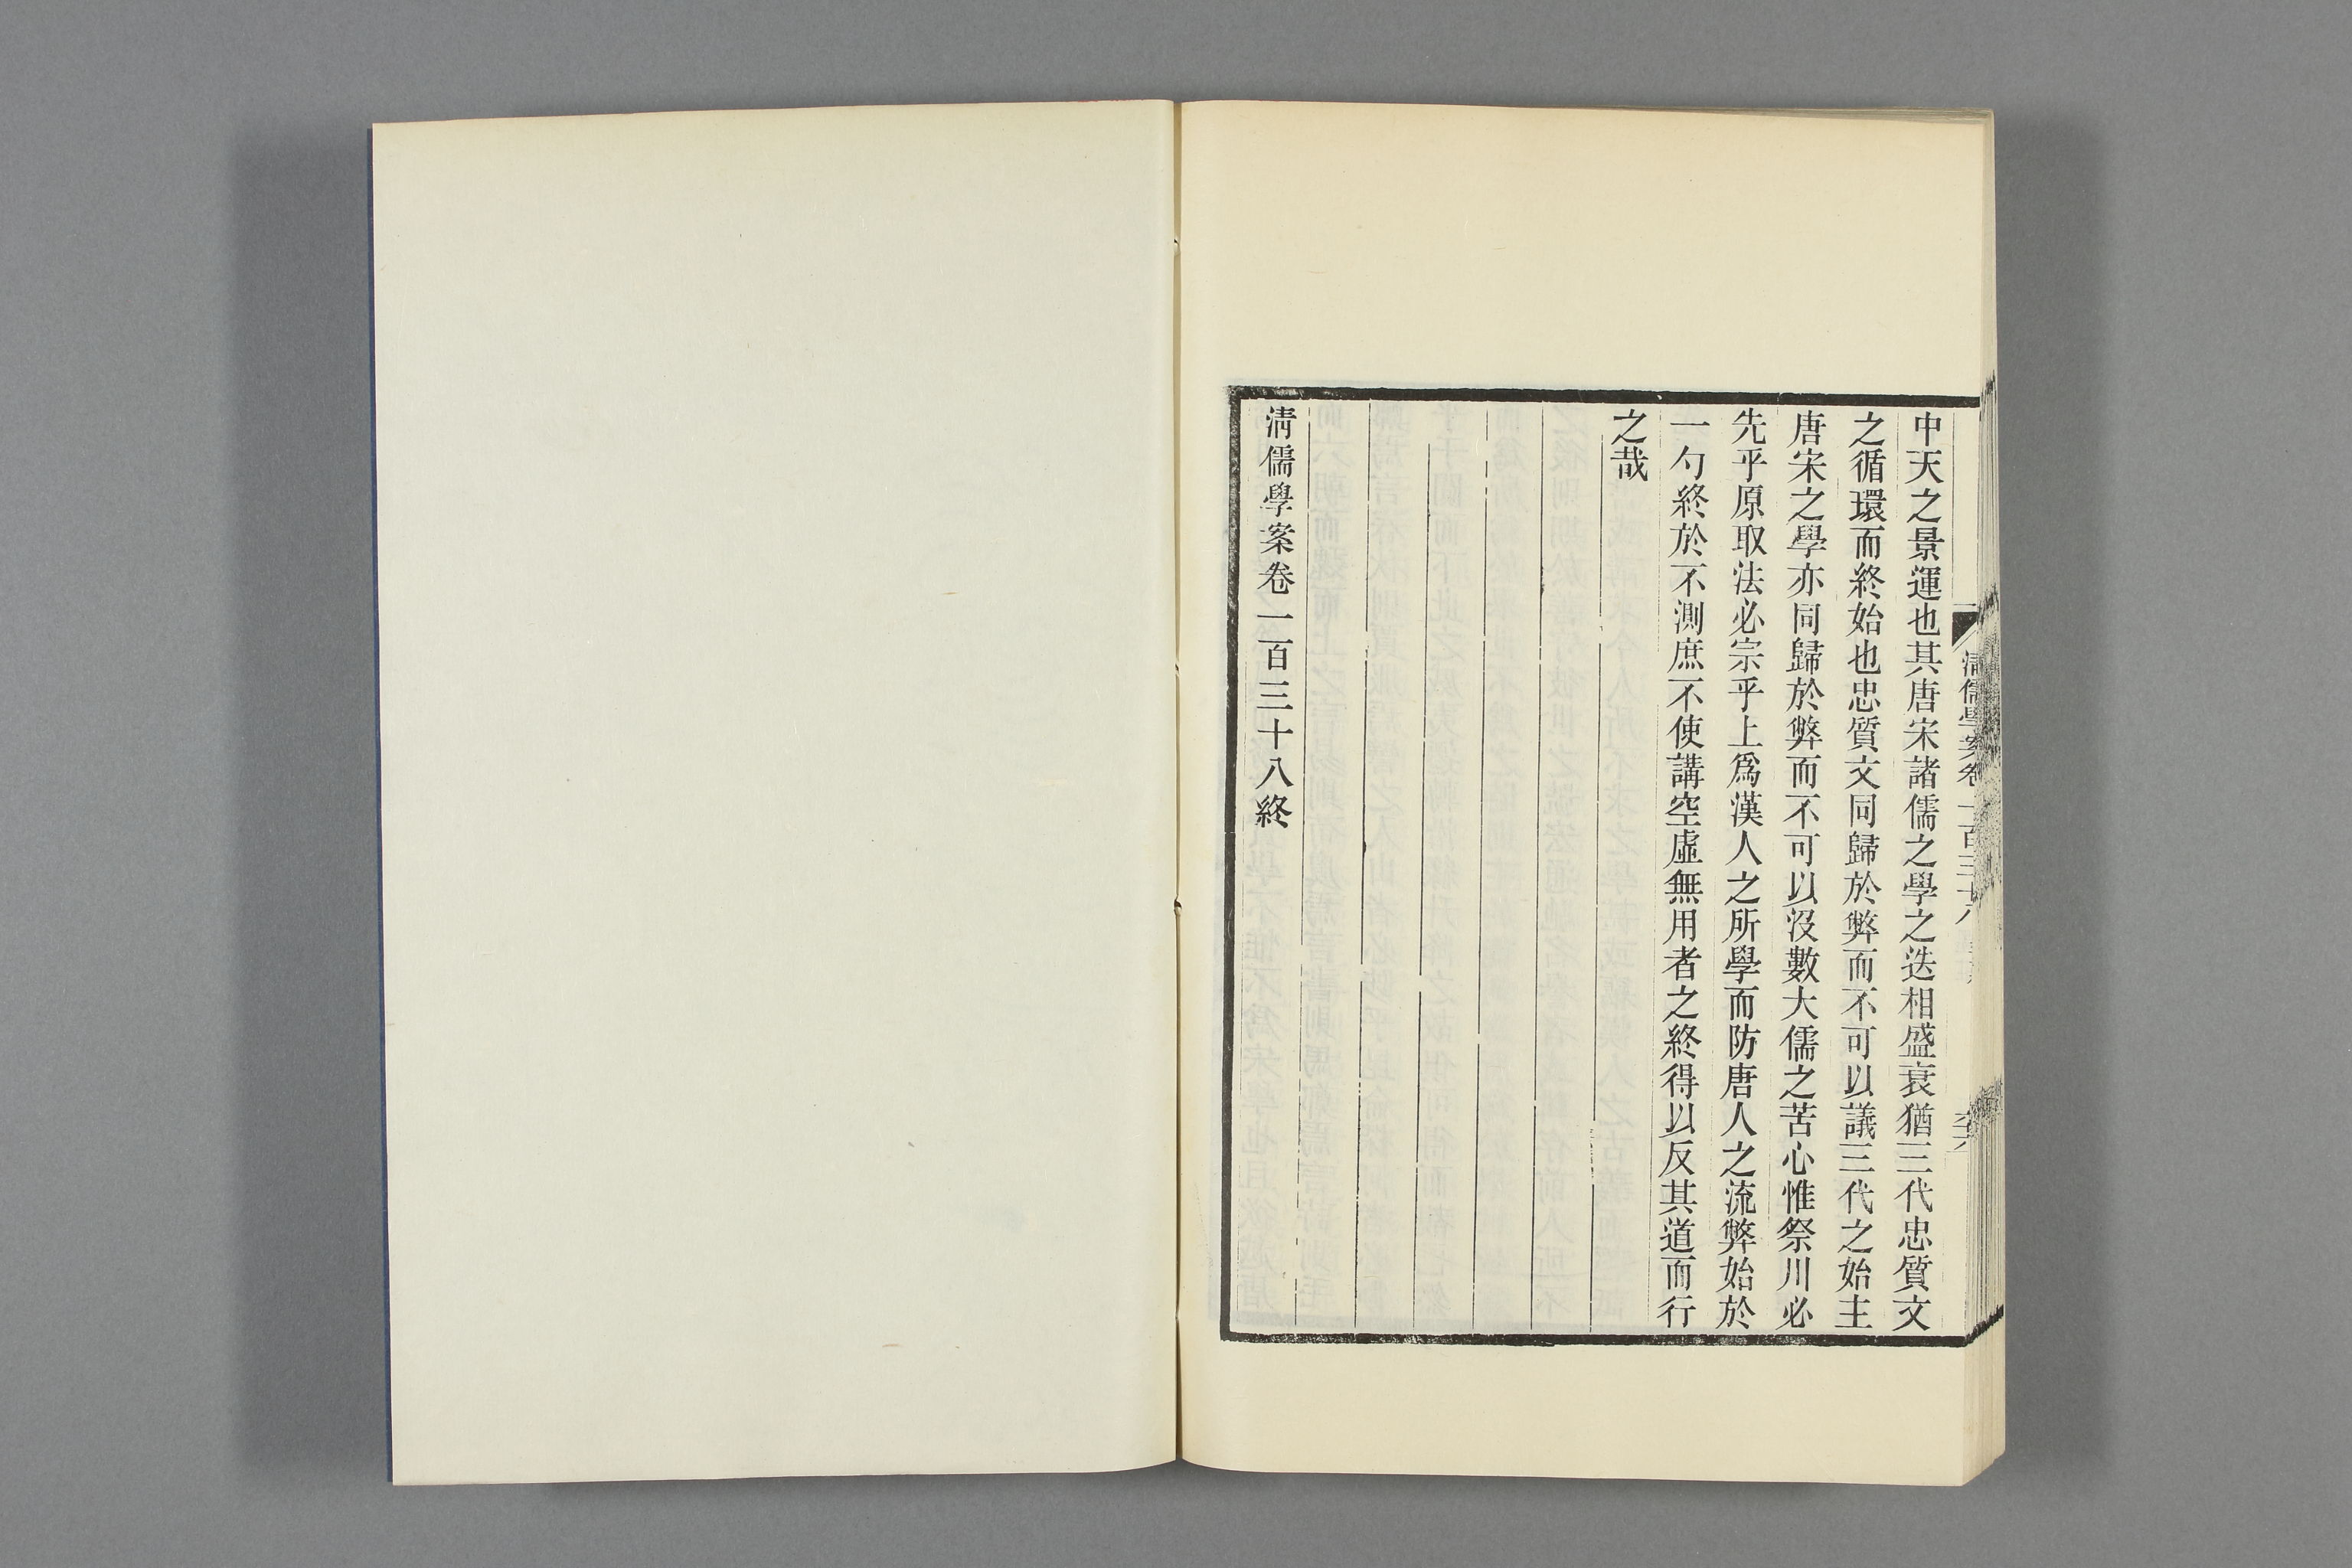 中天之景運也其唐宋諸儒之學之迭相盛衰猶三代忠質文
之循環而終始也忠質文同歸於弊而不可以議三代之始主
唐宋之學亦同歸於弊而不可以沒數大儒之苦心惟祭川必
先乎原取法必宗乎上爲漢人之所學而防唐人之流弊始於
一勺終於不測庶不使講空虛無用者之終得以反其道而行
之哉
清儒學案卷一百三十八終
清儒學案卷一百三十八